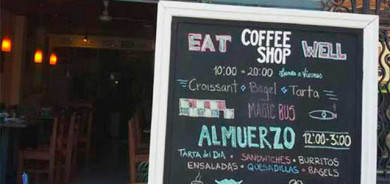 EAT COFFEE SHOP WELL
10:00 - 20:00
Croissant Bagel Tarta
MAGIC BUS
ALMUERZO 12:00-3:00
TARTA del DIA • SANDWICHES • BURRITOS
ENSALADAS • QUESADILLAS • BAGELS